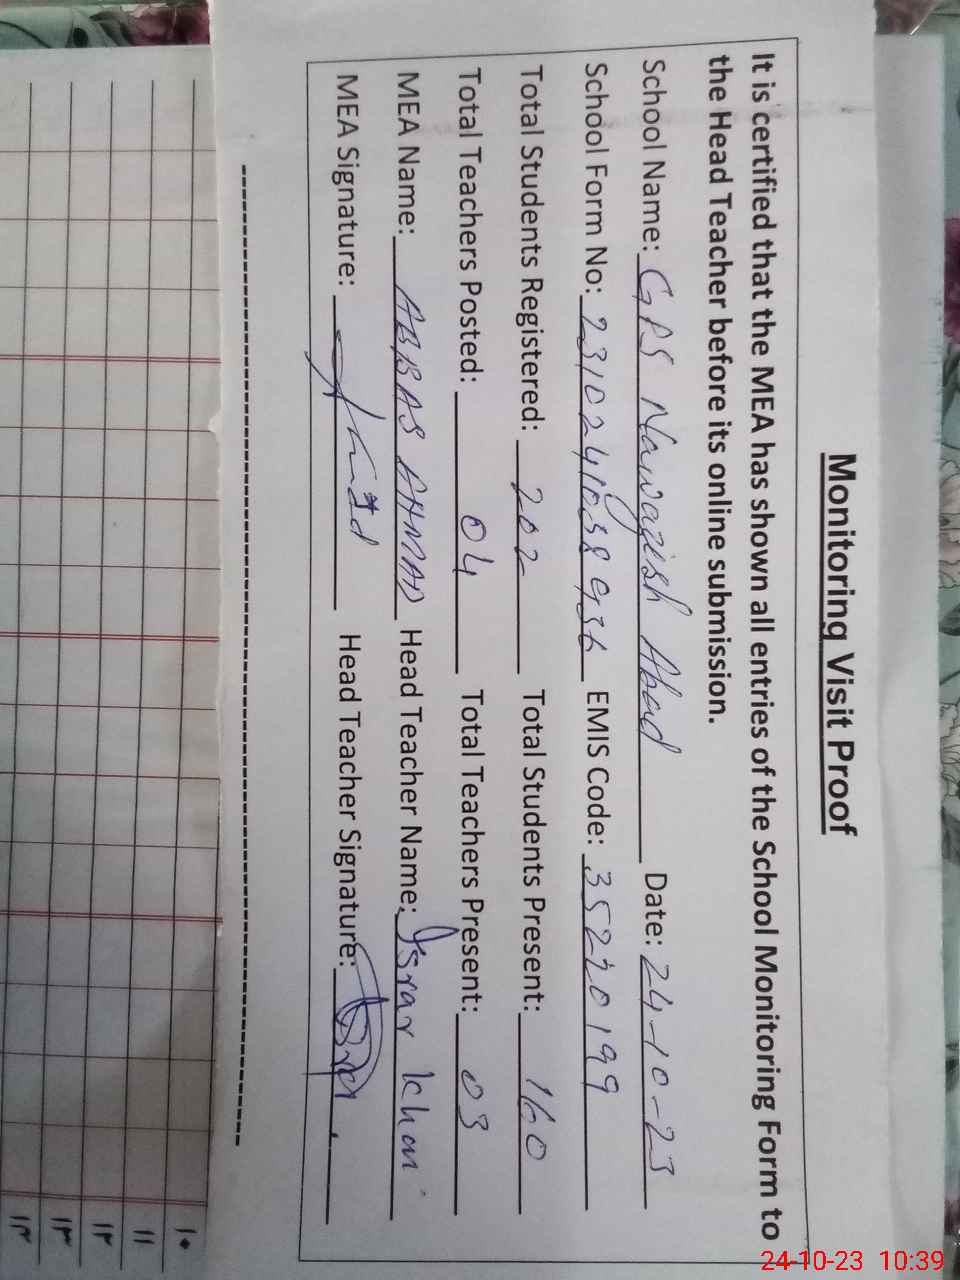 Monitoring Visit Proof
It is certified that the MEA has shown all entries of the School Monitoring Form to
the Head Teacher before its online submission.
School Name: GPS Nawazish Abad Date: 24-10-23
School Form No: 2310241038936 EMIS Code: 35220199
Total Students Registered: 202 Total Students Present: 160
Total Teachers Posted: 04 Total Teachers Present: 03
MEA Name: ABBAS AHMAD Head Teacher Name: Israr Khan
MEA Signature: Head Teacher Signature:
۱۰
۱۱
۱۲
۱۳
۱۴
24-10-23 10:39